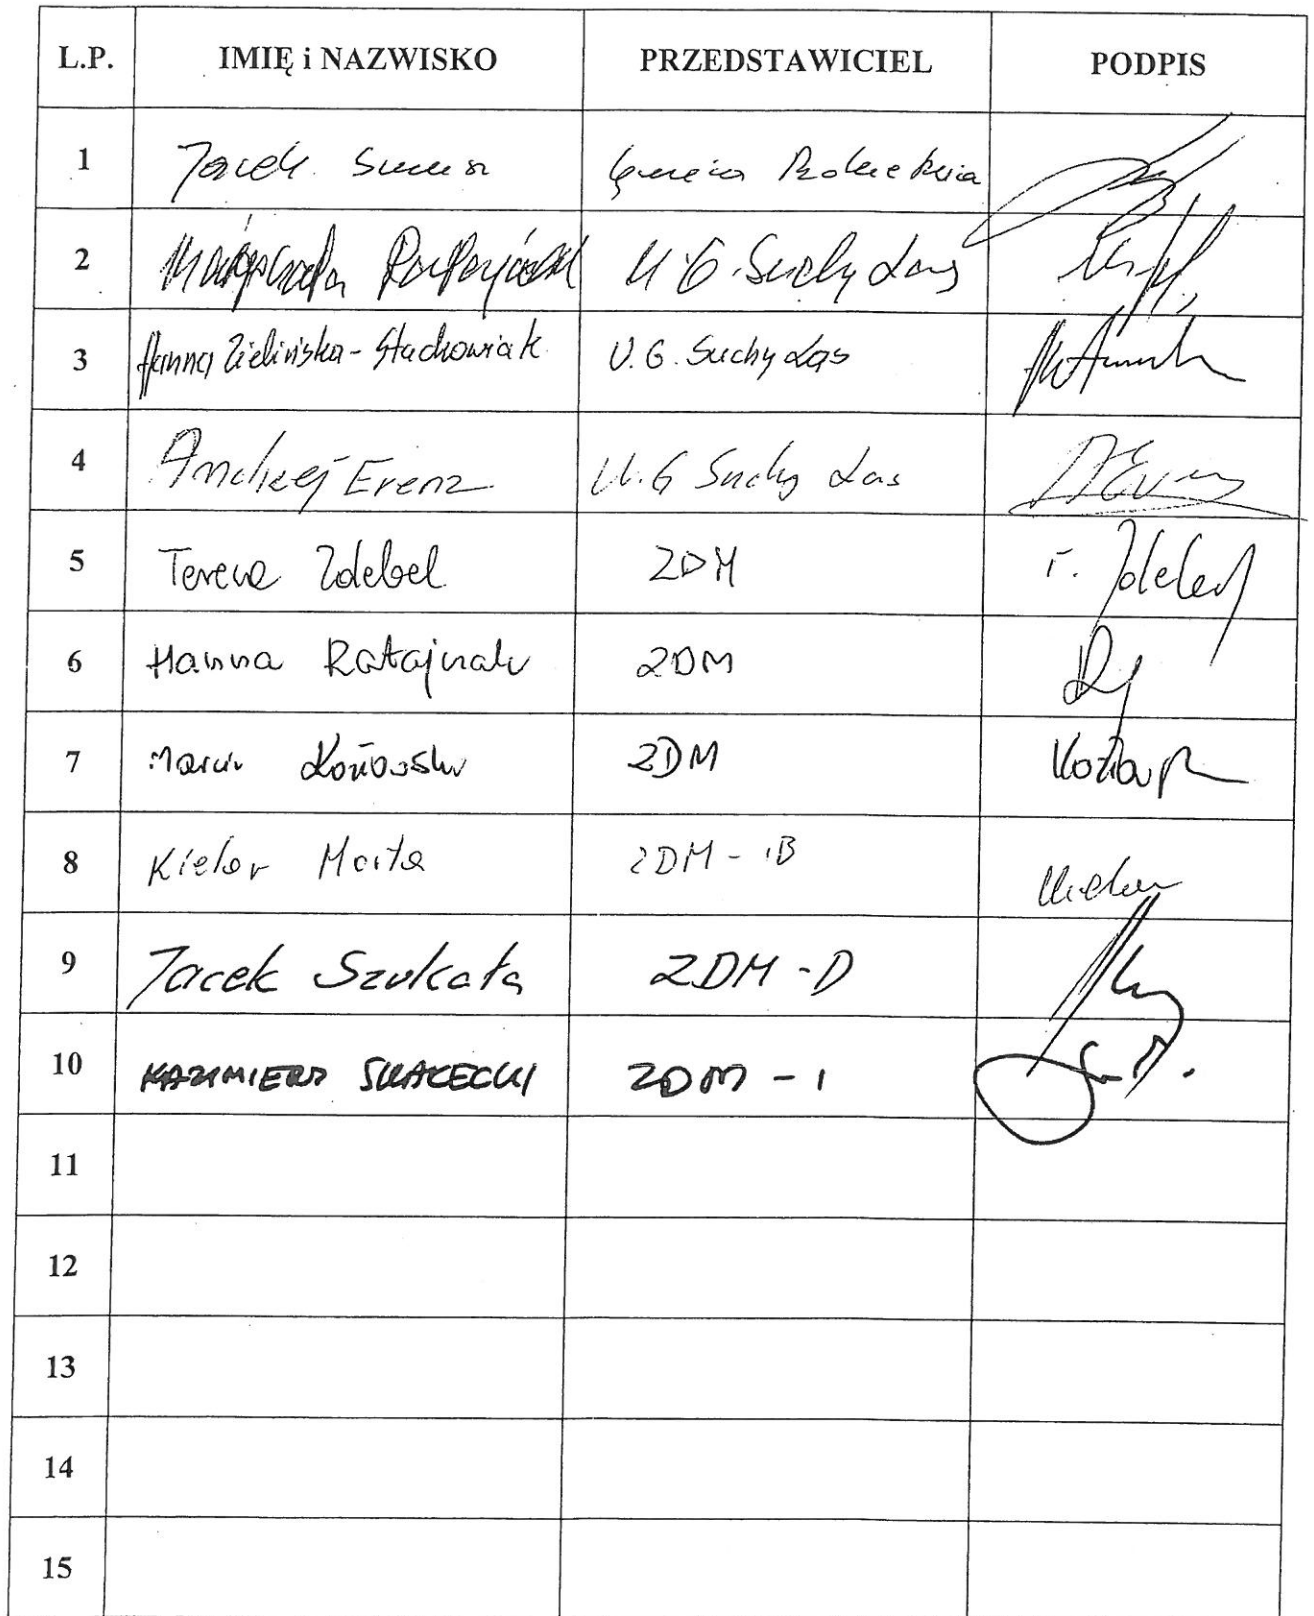 L.P. IMIĘ i NAZWISKO PRZEDSTAWICIEL PODPIS
1 Jacek
2 Małgorzata U.G. Suchy Las
3 Hanna Zielińska-Stachowiak U.G. Suchy Las
4 Andrzej Erenz U.G Suchy Las
5 Teresa Zdebel ZDM T. Zdebel
6 Hanna Ratajczak ZDM
7 Marcin ZDM
8 Kielar Marta ZDM - IB Kielar
9 Jacek Szukała ZDM - D
10 KAZIMIERZ SKAŁECKI ZDM - I
11
12
13
14
15